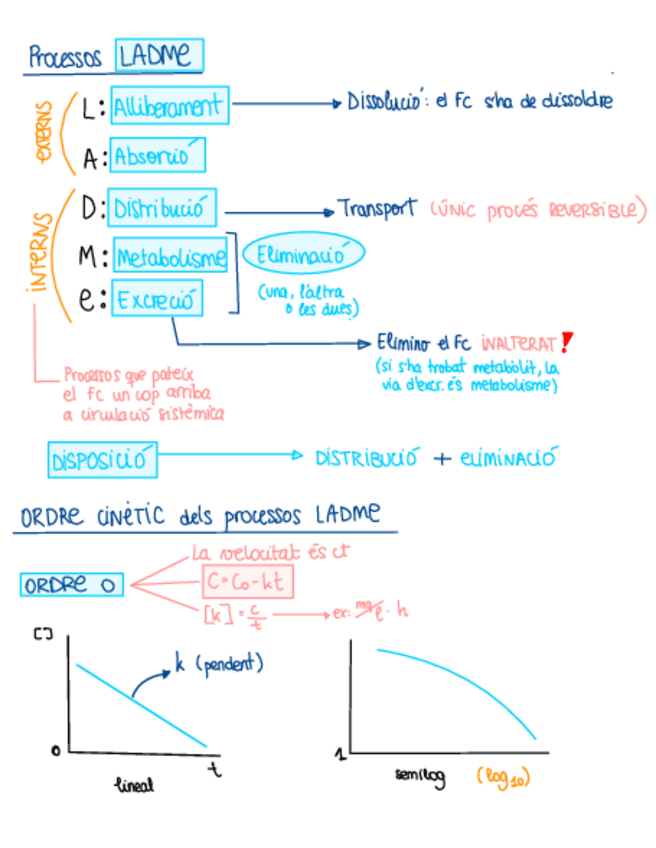 Processos LADME
EXTERNS
L: Alliberament → Dissolució: el Fc s'ha de dissoldre
A: Absorció
INTERNS
D: Distribució → Transport (ÚNIC procés REVERSIBLE)
M: Metabolisme
Eliminació
(una, l'altra
o les dues)
e: Excreció
Elimino el Fc INALTERAT!
(si s'ha trobat metabòlit, la
via d'excr. és metabolisme)
Processos que pateix
el Fc un cop arriba
a circulació sistèmica
DISPOSICIÓ → DISTRIBUCIÓ + eLIMINACIÓ
ORDRE CINÈTIC dels processos LADME
La velocitat és ct
ORDRE 0
C=C₀-kt
[k] = c/t → ex: mg/l · h
[]
k (pendent)
0
t
lineal
1
semilog (log₁₀)